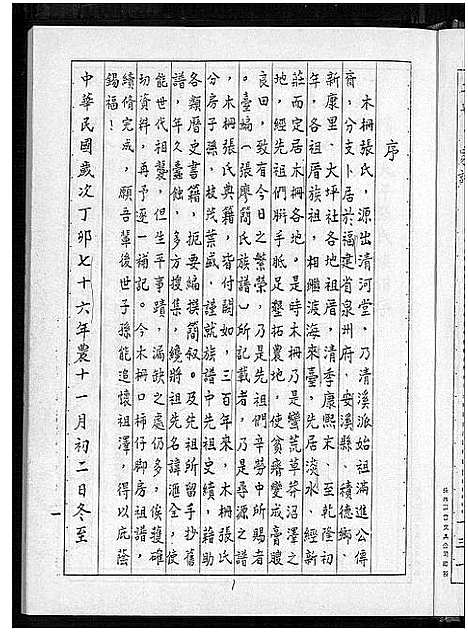 序
木柵張氏，源出清河堂，乃清溪派始祖滿進公傳
裔，分支卜居於福建省泉州府、安溪縣、積德鄉、
新康里、大坪社各地祖厝，清季康熙末、至乾隆初
年，各祖厝族祖，相繼渡海來臺，先居淡水、經新
莊而定居木柵各地。是時木柵乃是蠻荒草莽沼澤之
地，經先祖們胼手胝足墾拓農地，使貧瘠變成膏腴
良田，致有今日之繁榮，乃是先祖們辛勞中所賜者
。臺編（張廖簡氏族譜）所記載者，乃是尋源之者
，木柵張氏典籍，皆付闕如，三百年來，木柵張氏
分房子孫，枝茂葉盛，謹就族譜中先祖史績，藉助
各類曆史書籍，扼要編撰簡叙。及先祖所留手抄舊
譜，年久蠹蝕，多方搜集，纔將祖先名諱滙全，使
能世代祖襲，但生平事蹟，漏缺之處仍多，俟獲確
切資料，再予逐一補記。今木柵口柿仔脚房祖譜，
續脩完成，願吾輩後世子孫能追懷祖澤，得以庇蔭
錫福！
中華民國歲次丁卯七十六年農十一月初二日冬至
一
1